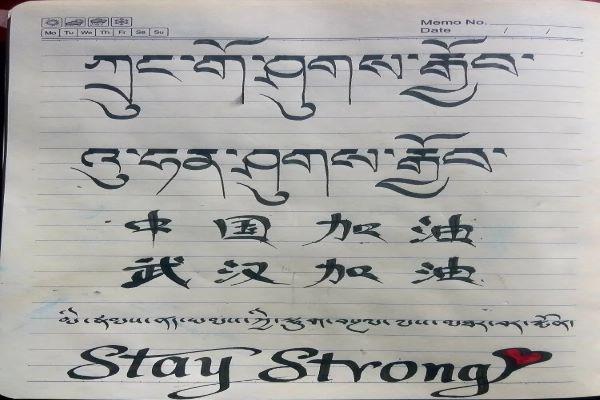 Memo No.
Mo Tu We Th Fr Sa Su
Date / /
ཀྲུང་གོ་ཤུགས་རྒྱོབ་
འུ་ཧན་ཤུགས་རྒྱོབ་
中国加油
武汉加油
Stay Strong